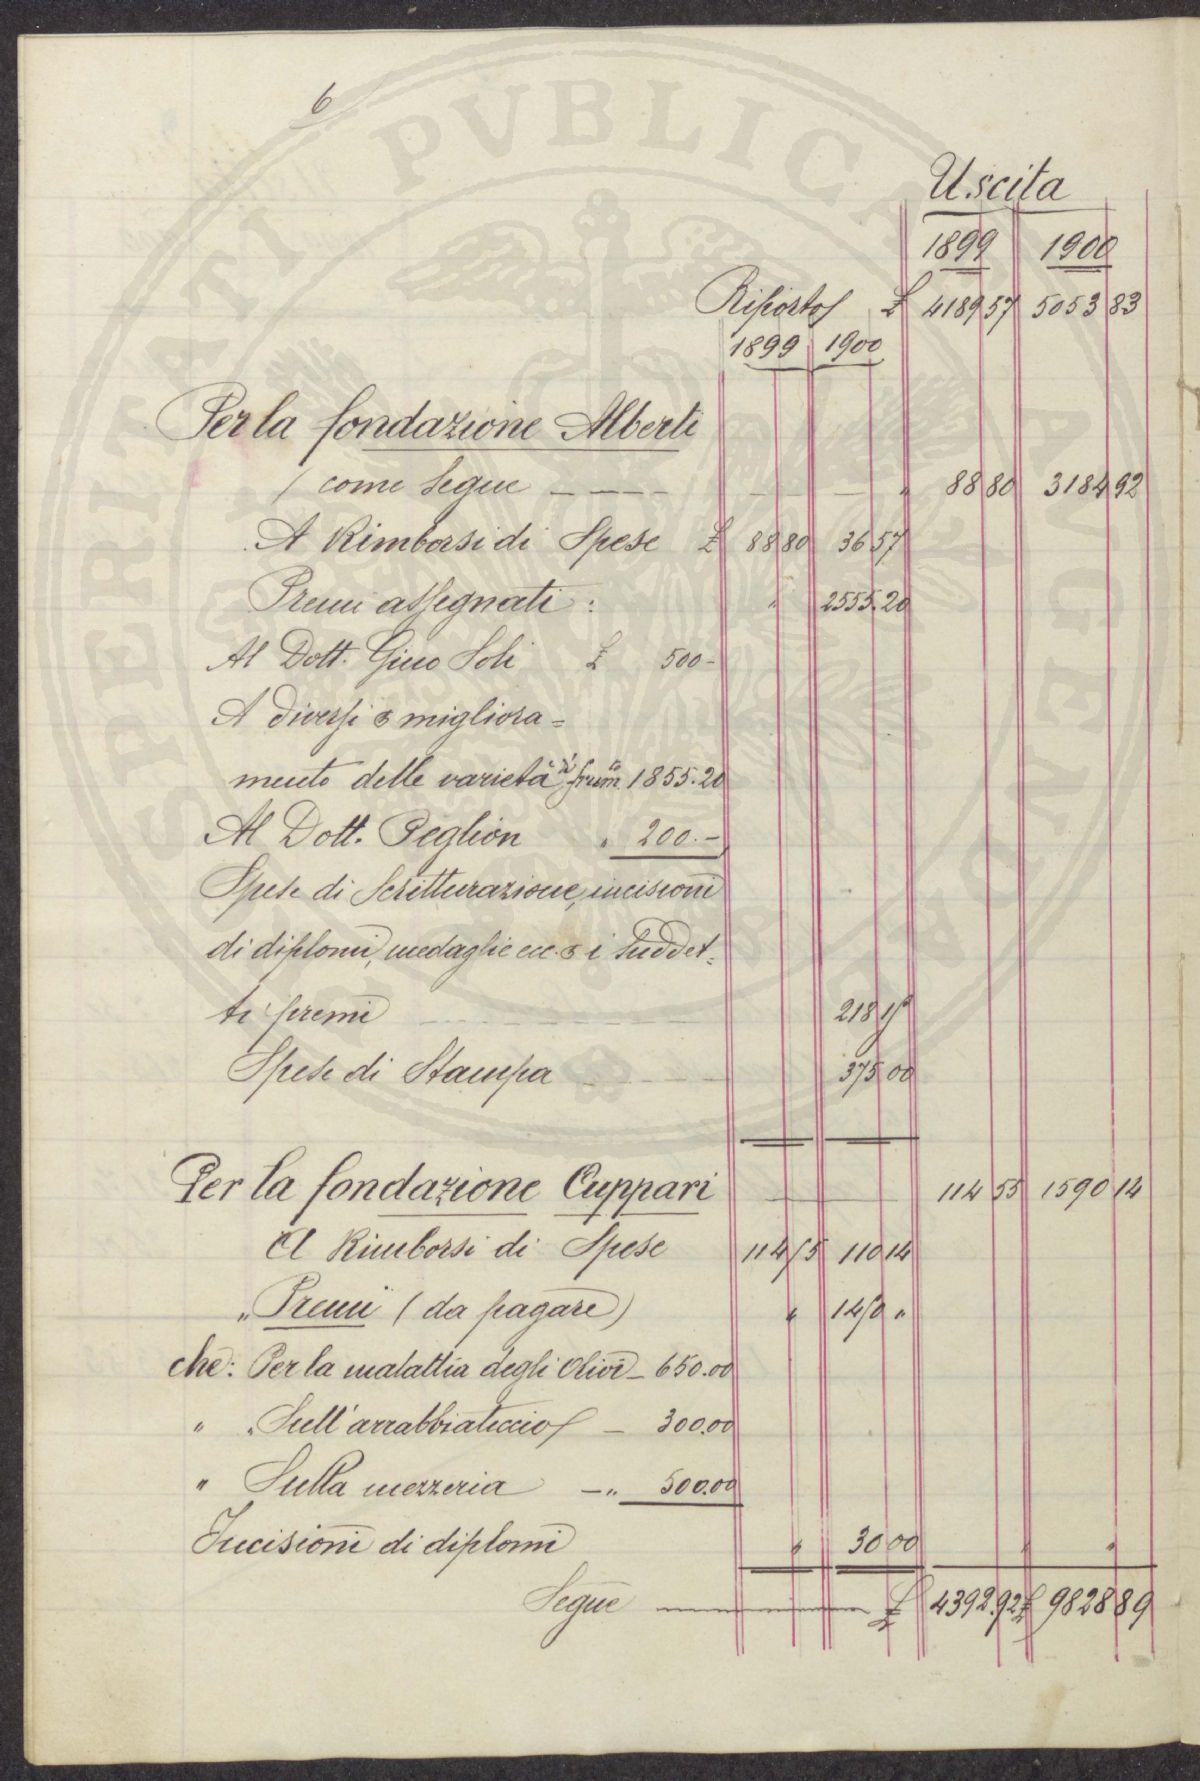 6
Uscita
1899 1900
Riporto £ 4189 57 5053 83
1899 1900
Per la fondazione Alberti
( come segue " 88 80 3184 92
A Rimborsi di Spese £ 88 80 36 57
Premi assegnati: " 2555.20
Al Dott. Gino Soli £ 500-
A diversi migliora=
mento delle varietà di frum.to 1855.20
Al Dott. Peglion " 200.-
Spese di Scritturazione, incisioni
di diplomi, medaglie ecc. i suddet=
ti premi 218 15
Spese di Stampa 375 00
Per la fondazione Cuppari 114 55 1590 14
A Rimborsi di Spese 114 55 110 14
" Premi (da pagare) " 1450 "
che: Per la malattia degli Olivi - 650.00
" " Sull'arrabbiaticcio - 300.00
" Sulla mezzeria -" 500.00
Incisioni di diplomi " 30 00 " "
Segue £ 4392.92 £ 9828 89
PERITATI PVBLICAE AVGENDAE PROSPERITATI